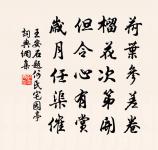 荷葉參差卷
榴花次第開
但令心有賞
歲月任渠催
王安石題何氏宅園亭
詞典網集